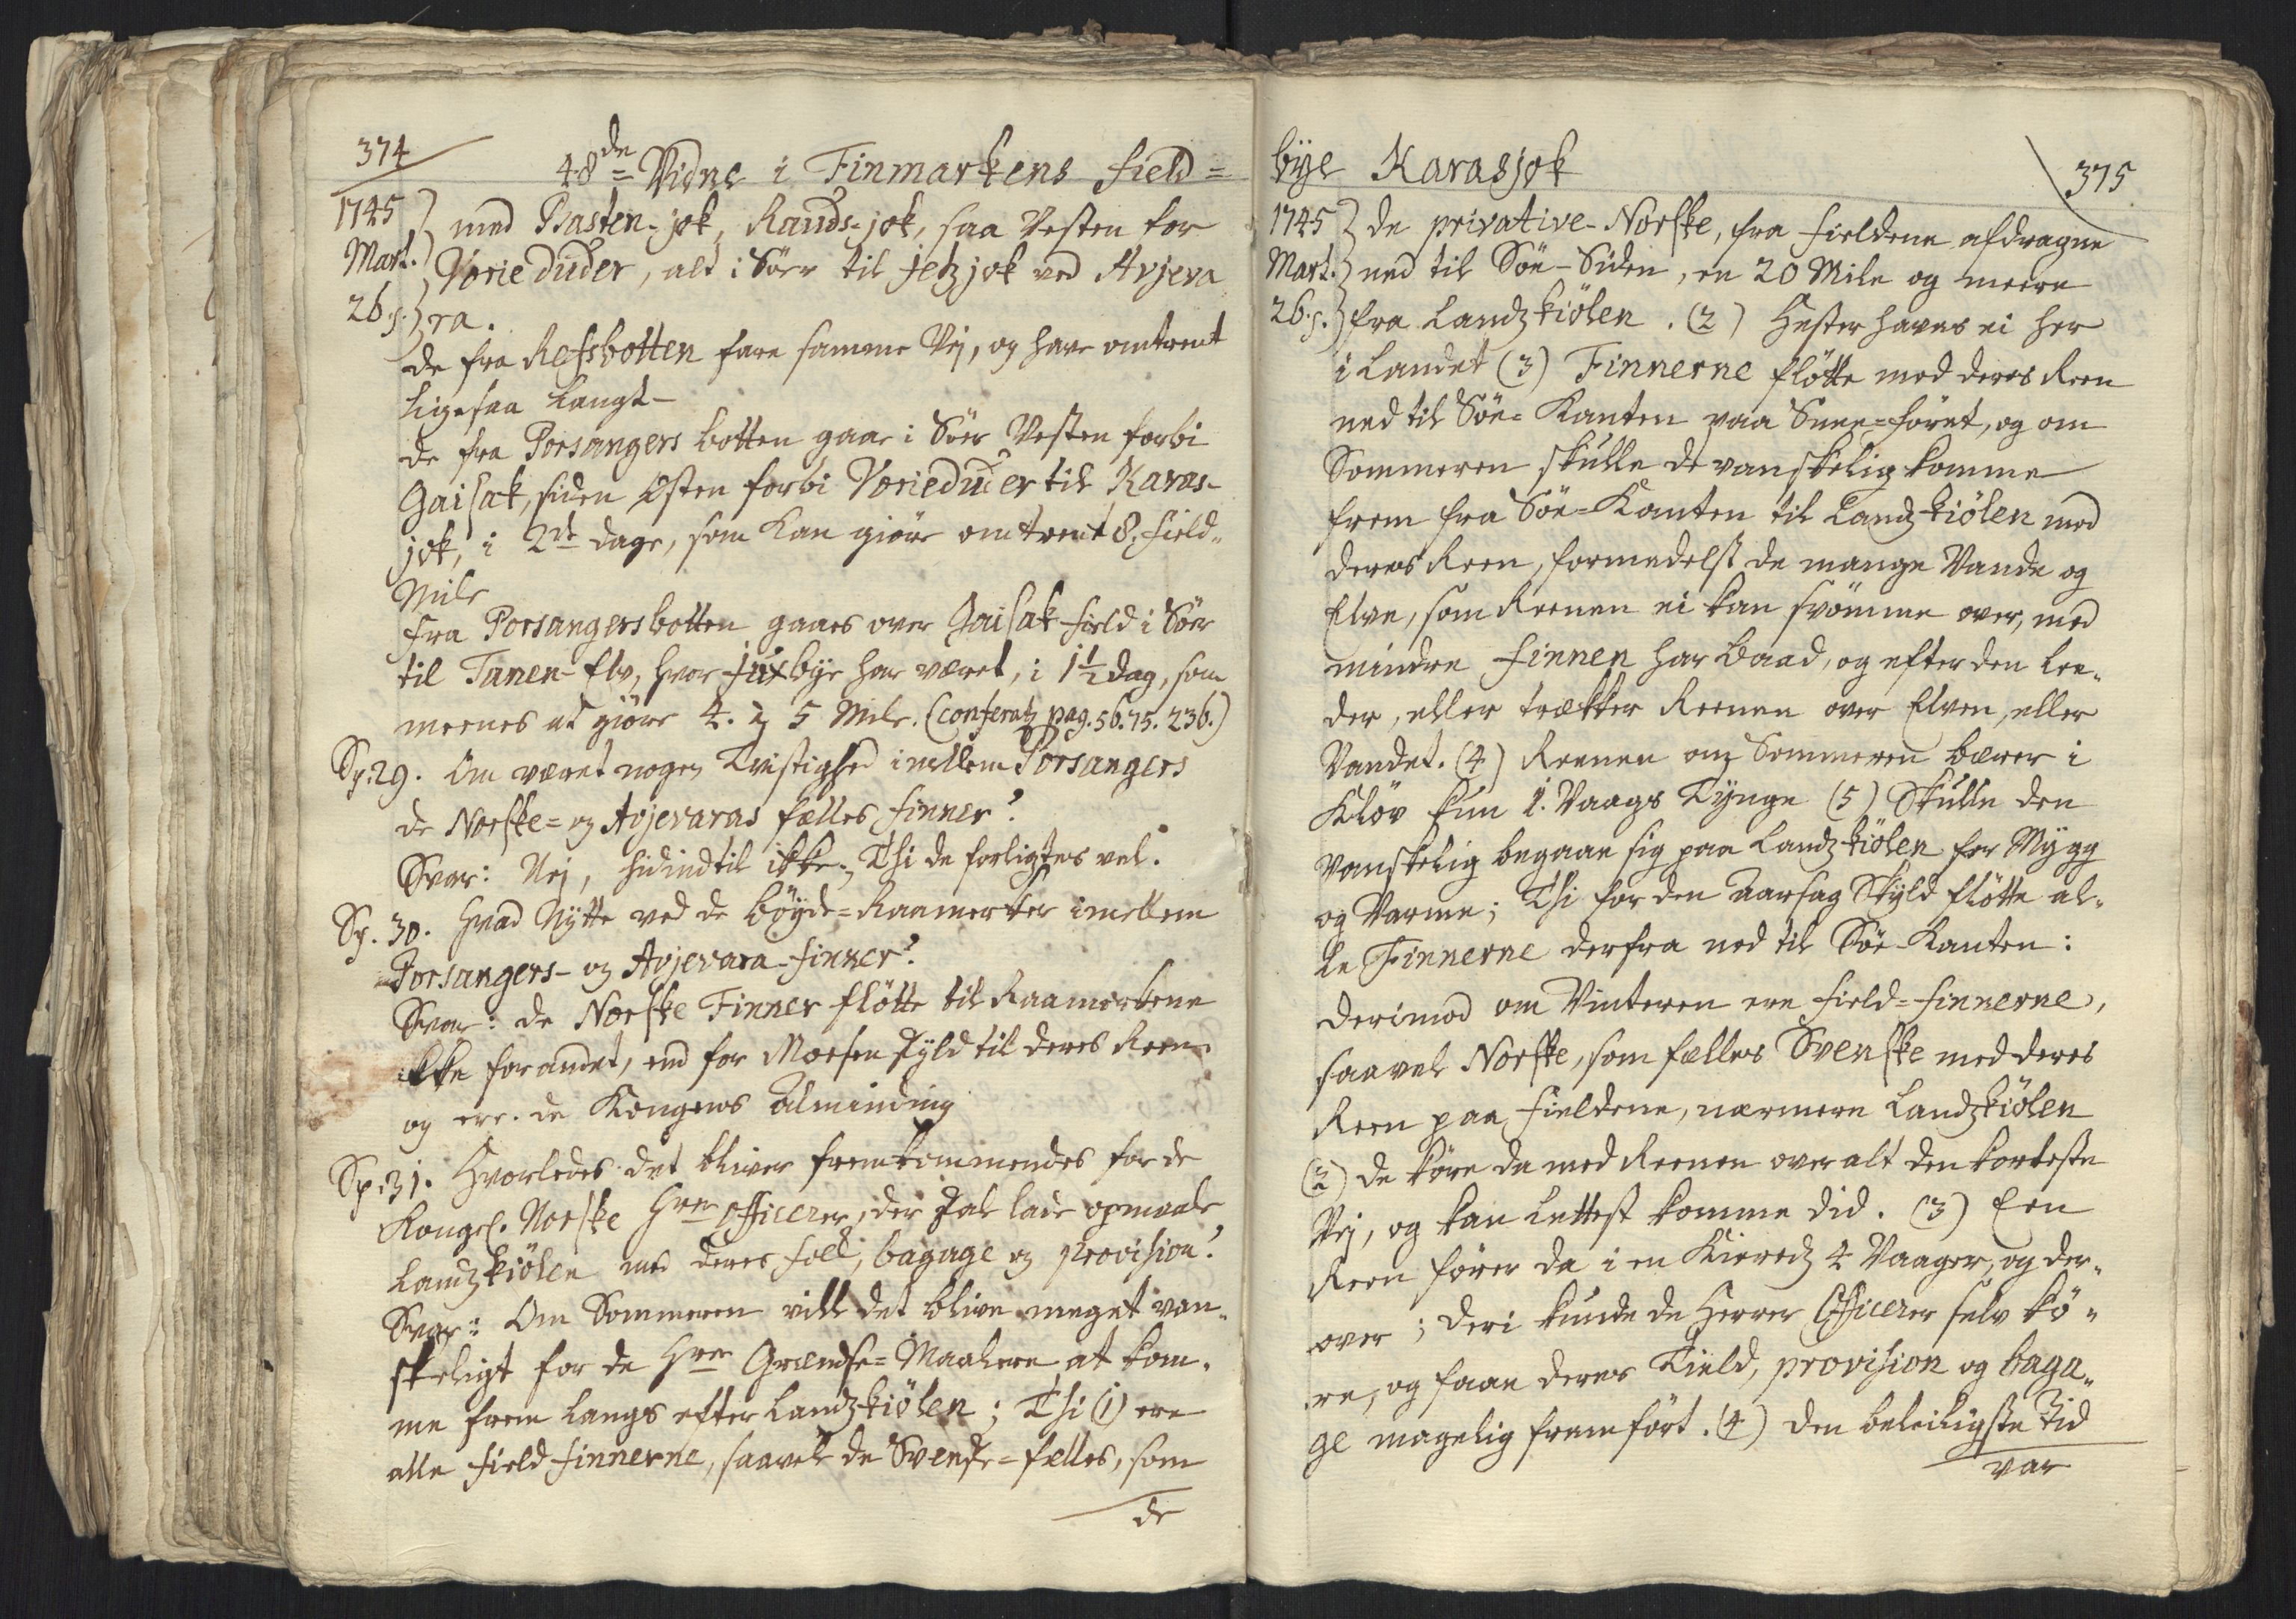 374
48de Vidne i Finmarkens field=
1745 med Basten-jok, Rauds-jok, saa Vesten for
Mart. Vorieduder, alt i Söer til jetzjok ved Avjeva
26. s. ra.
de fra Refsbotten fare samme Vej, og have omtrent
ligesaa langt-
de fra Porsangers botten gaae i Söer Vesten forbi
Gaisak, siden Osten forbi Vorieduder til Karas-
jok, i 2de dage, som kan giöre omtrent 8. field-
Mile
fra Porsangersbotten gaaes over Gaisak-field i Söer
til Tanen-Elv, hvor juxbye har været, i 1½ dag, som
meenes at giöre 4. à 5 Mile. (conferatz pag. 56. 75. 236.)
Sp. 29. Om været nogen Tvistighed imellem Porsangers
de Norske= og Avjevaras fælles finner?
Svar: Nej, hidindtil ikke; Thi de forligtes vel.
Sp. 30. Hvad Nytte ved de böyde=Raamerker imellem
Porsangers- og Avjevara-finner?
Svar: de Norske Finner flötte til Raamerkene
ikke for andet, end for Moesen Skyld til deres Reen
og ere de Kongens Alminding
Sp. 31. Hvorledes det bliver fremkommendes for de
Kongel. Norske Hrr Officerer, der skal lade opmaale
Landzkiölen med deres folk, bagage og provision?
Svar: Om Sommeren vilde det blive meget van-
skeligt for de Hrr Grændse=Maalere at kom-
me frem langs efter Landzkiölen; Thi (1) ere
alle field finnerne, saavel de Svenske=fælles, som
de
bye Karasjok
375
1745 de privative-Norske, fra fieldene afdragne
Mart. ned til Söe-Siden, en 20 Mile og meere
26. s. fra Landzkiölen. (2) Hester haves ei her
i Landet (3) Finnerne flötte med deres Reen
ned til Söe=Kanten paa Snee=föret, og om
Sommeren skulle de vanskelig komme
frem fra Söe=Kanten til Landzkiölen med
deres Reen, formedelst de mange Vande og
Elve, som Reenen ei kan svömme over, med
mindre finnen har baad, og efter den lee-
der, eller trækker Reenen over Elven, eller
Vandet. (4) Reenen om Sommeren bærer i
Klöv kun 1. Vaags Tynge (5) Skulle den
vanskelig begaae sig paa Landzkiölen for Mygg
og Varme; Thi for den Aarsag Skyld flötte al-
le Finnerne derfra ned til Söe-Kanten:
derimod om Vinteren ere field=finnerne,
saavel Norske, som fælles Svenske med deres
Reen paa fieldene, nærmere Landzkiölen
(2) de köre da med Reenen overalt den korteste
Vej, og kan lettest komme did. (3) Een
Reen förer da i en Kieredz 4 Vaager, og der-
over; deri kunde de Herrer Officerer selv kö-
re, og faae deres Tield, provision og baga-
ge magelig fremfört. (4) den beleiligste Tid
var